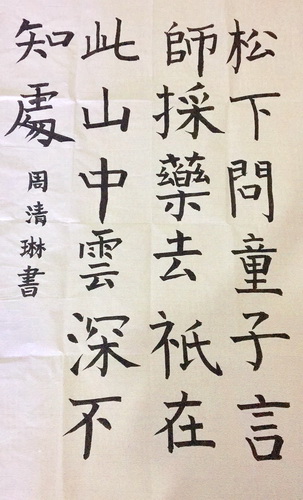 松下問童子言
師採藥去祇在
此山中雲深不
知處
周清琳書